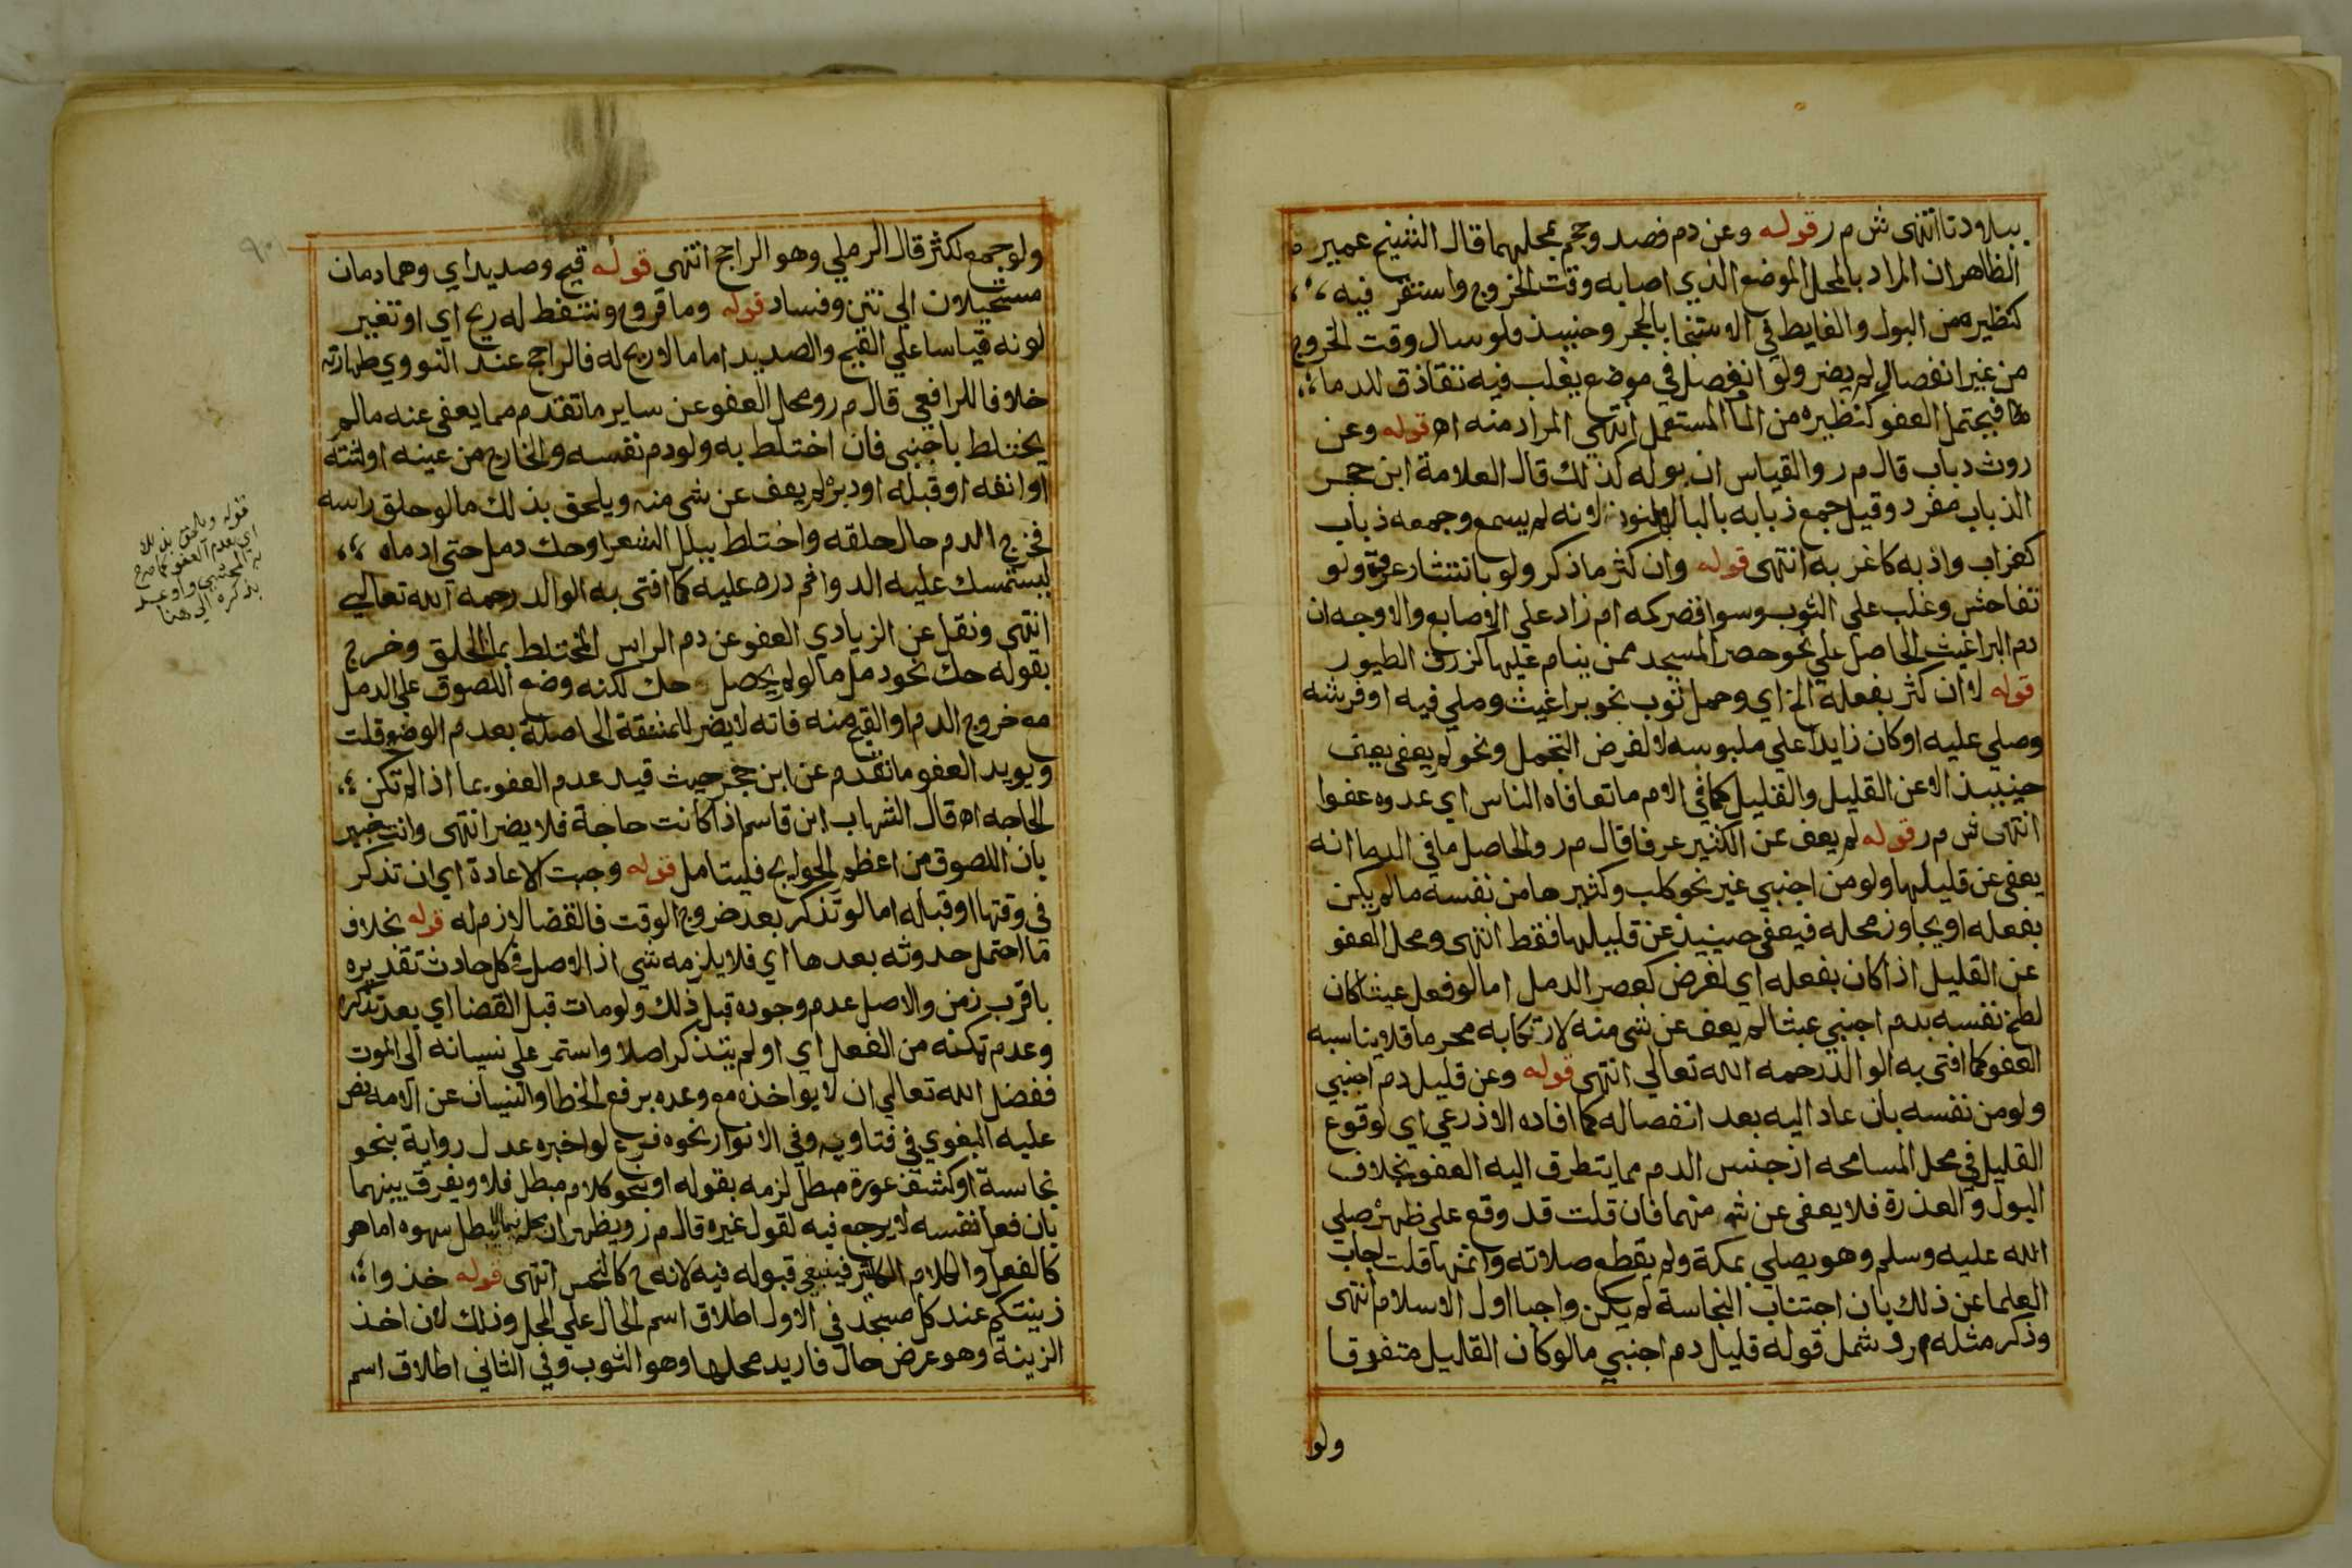 ببلاودنا انتهى ش م ر قوله وعن دم فصد وحجم بمحلهما قال الشيخ عميره
الظاهر ان المراد بالمحل الموضع الذي اصابه وقت الخروج واستقر فيه
كنظيره من البول والغايط في الاستنجا بالحجر وحينيذ فلو سال وقت الخروج
من غير انفصال لم يضر ولو انفصل في موضع يغلب فيه تقاذف الدماء
فيحتمل العفو كنظيره من الما المستعمل انتهى المراد منه اه قوله وعن
روث دباب قال م ر والقياس ان بوله كذلك قال العلامة ابن حجر
الذباب مفرد وقيل جمع ذبابه بالبا لا بالنون لانه لم يسمع وجمعه ذباب
كغراب واذبه كاغربه انتهى قوله وان كثر ما ذكر ولو بانتشار عرق ولو
تفاحش وغلب على الثوب وسوا قصر كمه ام زاد على الاصابع والاوجه ان
دم البراغيث الحاصل علي نحو حصر المسجد ممن ينام عليها كزرق الطيور
قوله لا ان كثر بفعله الخ اي وحمل ثوب نحو براغيث وصلي فيه او فرشه
وصلي عليه او كان زايدا علي ملبوسه لا لغرض التجمل ونحوه لم يعفى
حينيذ الا عن القليل والقليل كما في الام ما تعافاه الناس اي عدوه عفوا
انتهى ش م ر قوله لم يعف عن الكثير عرفا قال م ر والحاصل ما في الدما انه
يعفى عن قليلها ولو من اجنبي غير نحو كلب وكثيرها من نفسه مالم يكن
بفعله او يجاوز محله فيعفى حينيذ عن قليلها فقط انتهى ومحل العفو
عن القليل اذا كان بفعله اي لغرض كعصر الدمل اما لو فعل عبثا كان
لطخ نفسه بدم اجنبي عبثا لم يعف عن شي منه لارتكابه محرما فلا يناسبه
العفو كما افتى به الوالد رحمه الله تعالي انتهى قوله وعن قليل دم اجنبي
ولو من نفسه بان عاد اليه بعد انفصاله كما افاده الاذرعي اي لوقوع
القليل في محل المسامحه اذ جنس الدم مما يتطرق اليه العفو بخلاف
البول والعذرة فلا يعفى عن شي منهما فان قلت قد وقع على ظهره صلي
الله عليه وسلم وهو يصلي بمكة ولم يقطع صلاته واتمها قلت اجاب
العلما عن ذلك بان اجتناب النجاسة لم يكن واجبا اول الاسلام انتهى
وذكر مثله م ر وشمل قوله قليل دم اجنبي مالو كان القليل متفرقا
ولو
ولو جمع لكثر قال الرملي وهو الراجح انتهى قوله قيح وصديد اي وهما دمان
مستحيلان الي نتن وفساد قوله وما قروح ونتنفط له ريح اي او تغير
لونه قياسا علي القيح والصديد اما مالا ريح له فالراجح عند النووي طهارته
خلافا للرافعي قال م ر ومحل العفو عن ساير ما تقدم مما يعفى عنه مالم
يختلط باجنبى فان اختلط به ولو دم نفسه والخارج من عينه او لثته
او انفه او قبله او دبره لم يعف عن شي منه ويلحق بذلك مالو حلق راسه
فخرج الدم حال حلقه واختلط ببلل الشعر او حك دمل حتى ادماه
ليستمسك عليه الدوا ثم دره عليه كما افتى به الوالد رحمه الله تعالي
انتهى ونقل عن الزيادي العفو عن دم الراس المختلط بما الحلق وخرج
بقوله حك نحو دمل مالو لم يحصل حك لكنه وضع اللصوق علي الدمل
مع خروج الدم او القيح منه فانه لا يضر للمشقة الحاصلة بعدم الوضع قلت
ويويد العفو ما تقدم عن ابن حجر حيث قيد عدم العفو بما اذا لم تكن
الحاجه اه قال الشهاب ابن قاسم اذا كانت حاجة فلا يضر انتهى وانت خبير
بان اللصوق من اعظم الحوايج فليتامل قوله وجبت الاعادة اي ان تذكر
في وقتها او قبله اما لو تذكر بعد خروج الوقت فالقضا لازم له قوله بخلاف
ما احتمل حدوثه بعدها اي فلا يلزمه شي اذ الاصل في كل حادث تقديره
باقرب زمن والاصل عدم وجوده قبل ذلك ولو مات قبل القضا اي بعد تذكره
وعدم تمكنه من الفعل اي او لم يتذكر اصلا واستمر علي نسيانه الى الموت
ففضل الله تعالي ان لا يواخذه مع وعده برفع الخطا والنسيان عن الامه نص
عليه البغوي في فتاويه وفي الانوار نحوه فرع لو اخبره عدل رواية بنحو
نجاسة او كشف عورة مبطل لزمه بقوله او نحو كلام مبطل فلا ويفرق بينهما
بان فعل نفسه لا يرجع فيه لقول غيره قال م ر ويظهر ان محله فيما لا يبطل سهوه اما هو
كالفعل والكلام الكثير فينبغي قبوله فيه لانه ح كالنجس انتهى قوله خذوا
زينتكم عند كل مسجد في الاول اطلاق اسم الحال علي المحل وذلك لان اخذ
الزينة وهو عرض حال فاريد محلها وهو الثوب وفي الثاني اطلاق اسم
٩٠
قوله ويلحق بذلك
اي بعدم العفو كما صرح
به المحشي
بذكره الي هنا